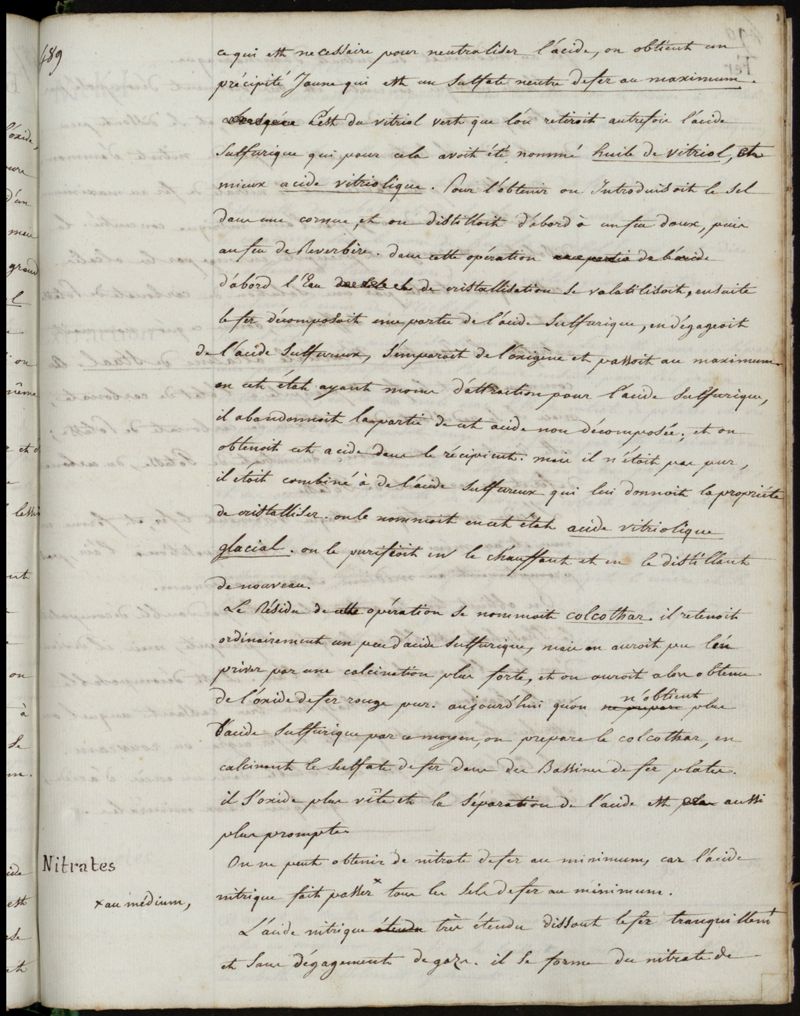 489
ce qui est necessaire pour neutraliser l'acide, on obtient un
précipité Jaune qui est un Sulfate neutre de fer au maximum.
C'est du vitriol vert que l'on retiroit autrefois l'acide
Sulfurique qui pour cela avoit été nommé huile de vitriol, et
mieux acide vitriolique. Pour l'obtenir on Introduisoit le Sel
dans une cornue, et on distilloit d'abord à un feu doux, puis
au feu de Reverbère. dans cette opération une partie de l'acide
d'abord l'Eau de cristallisation se volatilisoit, ensuite
le fer décomposoit une partie de l'acide Sulfurique, en dégageoit
de l'acide Sulfureux, s'emparoit de l'oxigène et passoit au maximum
en cet état ayant moins d'attraction pour l'acide Sulfurique,
il abandonnoit la partie de cet acide non décomposée; et on
obtenoit cet acide dans le récipient. mais il n'étoit pas pur,
il étoit combiné à de l'acide Sulfureux qui lui donnoit la propriété
de cristalliser. on le nommoit en cet état acide vitriolique
glacial. on le purifioit en le chauffant et en le distillant
de nouveau.
Le Résidu de cette opération se nommoit colcothar. il retenoit
ordinairement un peu d'acide Sulfurique, mais on auroit pu l'en
priver par une calcination plus forte, et on auroit alors obtenu
de l'oxide de fer rouge pur. aujourd'hui qu'on ne prepare n'obtient plus
d'acide Sulfurique par ce moyen, on prepare le colcothar, en
calcinant le Sulfate de fer dans des Bassines de fer plates.
il S'oxide plus vîte et la Séparation de l'acide est plus aussi
plus prompte.
Nitrates
On ne peut obtenir de nitrate de fer au minimum, car l'acide
nitrique fait passer × tous les Sels de fer au minimum.
× au médium,
L'acide nitrique étendu très étendu dissout le fer tranquillemt
et Sans dégagement de gazs. il se forme du nitrate de